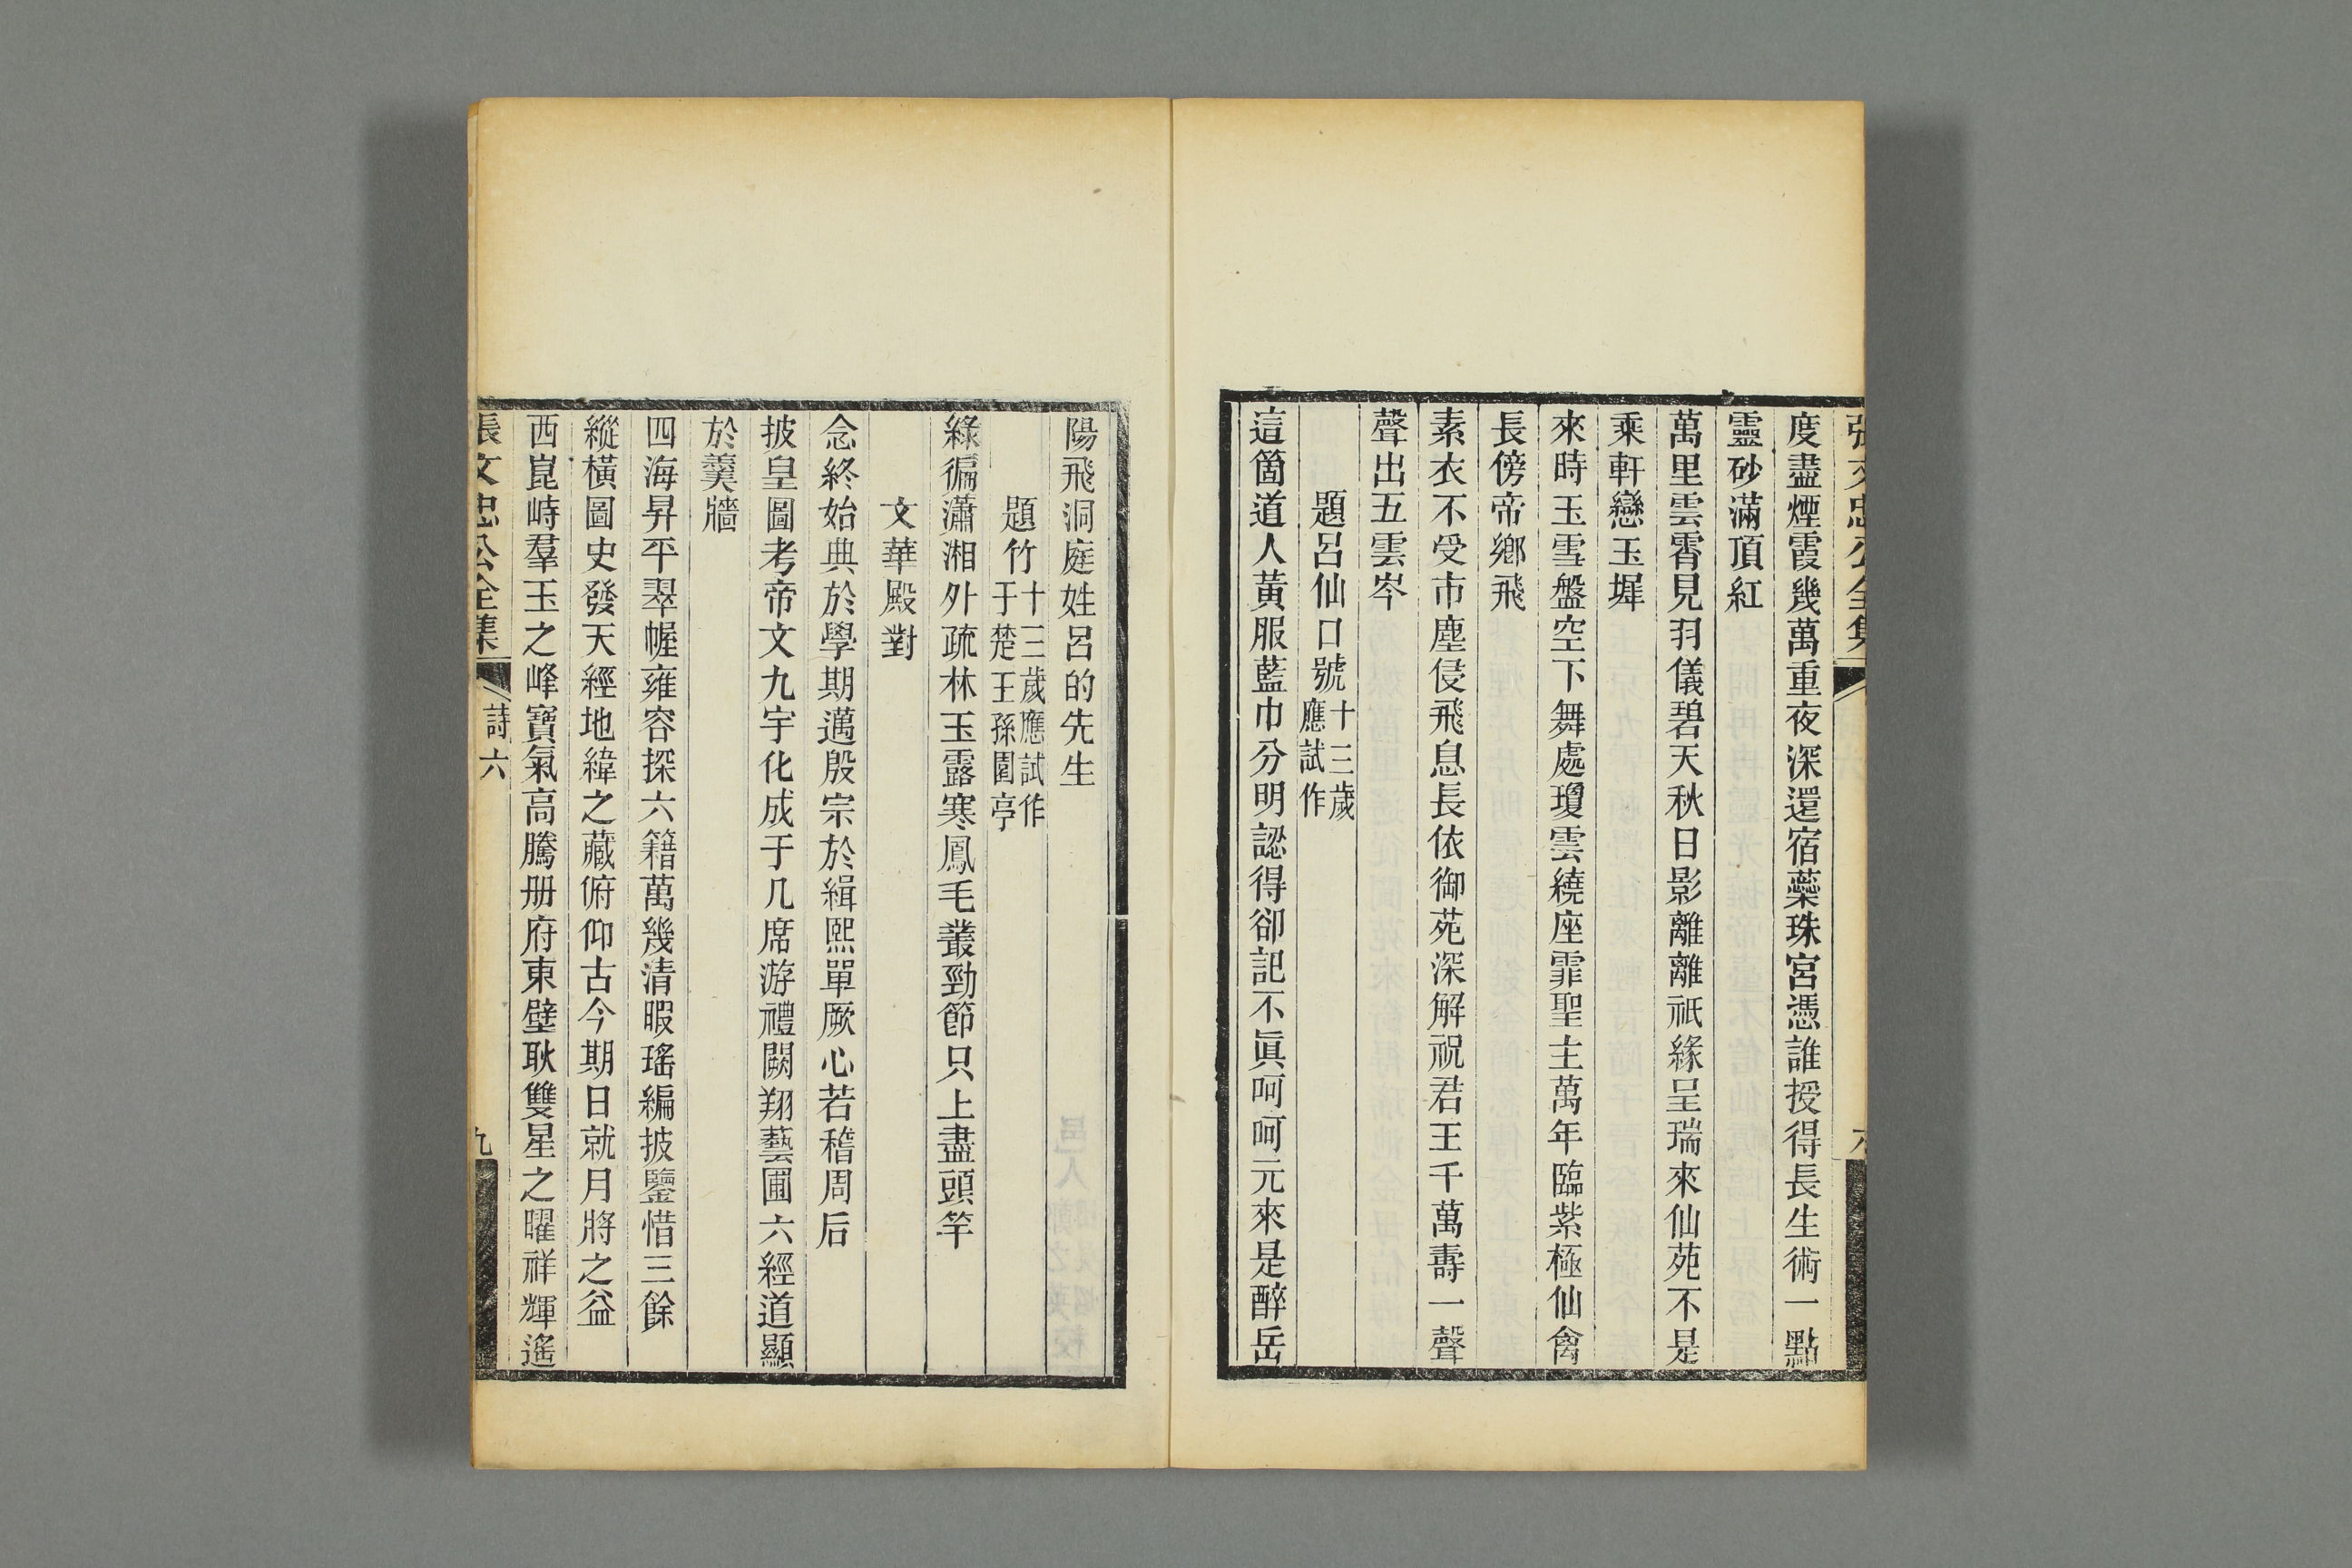 度盡煙霞幾萬重夜深還宿蘂珠宮憑誰授得長生術一點
靈砂滿頂紅
萬里雲霄見羽儀碧天秋日影離離祇緣呈瑞來仙苑不是
乘軒戀玉墀
來時玉雪盤空下舞處瓊雲繞座霏聖主萬年臨紫極仙禽
長傍帝鄉飛
素衣不受市塵侵飛息長依御苑深解祝君王千萬壽一聲
聲出五雲岑
題呂仙口號十三歲應試作
這箇道人黃服藍巾分明認得卻記不眞呵呵元來是醉岳
陽飛洞庭姓呂的先生
題竹十三歲應試作于楚王孫園亭
綠徧瀟湘外疏林玉露寒鳳毛叢勁節只上盡頭竿
文華殿對
念終始典於學期邁殷宗於緝熙單厥心若稽周后
披皇圖考帝文九宇化成于几席游禮闕翔藝圃六經道顯
於羹牆
四海昇平翠幄雍容探六籍萬幾清暇瑤編披鑒惜三餘
縱橫圖史發天經地緯之藏俯仰古今期日就月將之益
西崑峙羣玉之峰寶氣高騰册府東壁耿雙星之曜祥輝遙
張文忠公全集 詩六 九